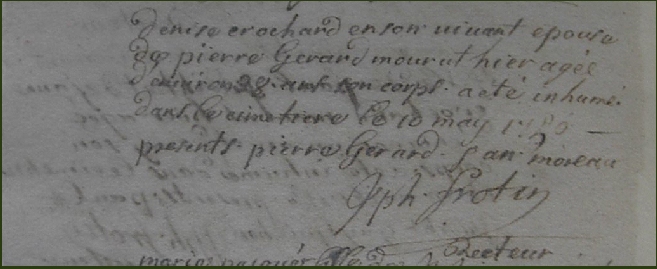 denise crochard en son vivant epouse
de pierre Gerard mourut hier agée
d'environ 28 ans son corps a été inhumé
dans le cimetiere le 10 may
presents pierre Gerard Jan moreau
Jph. Frotin
Recteur